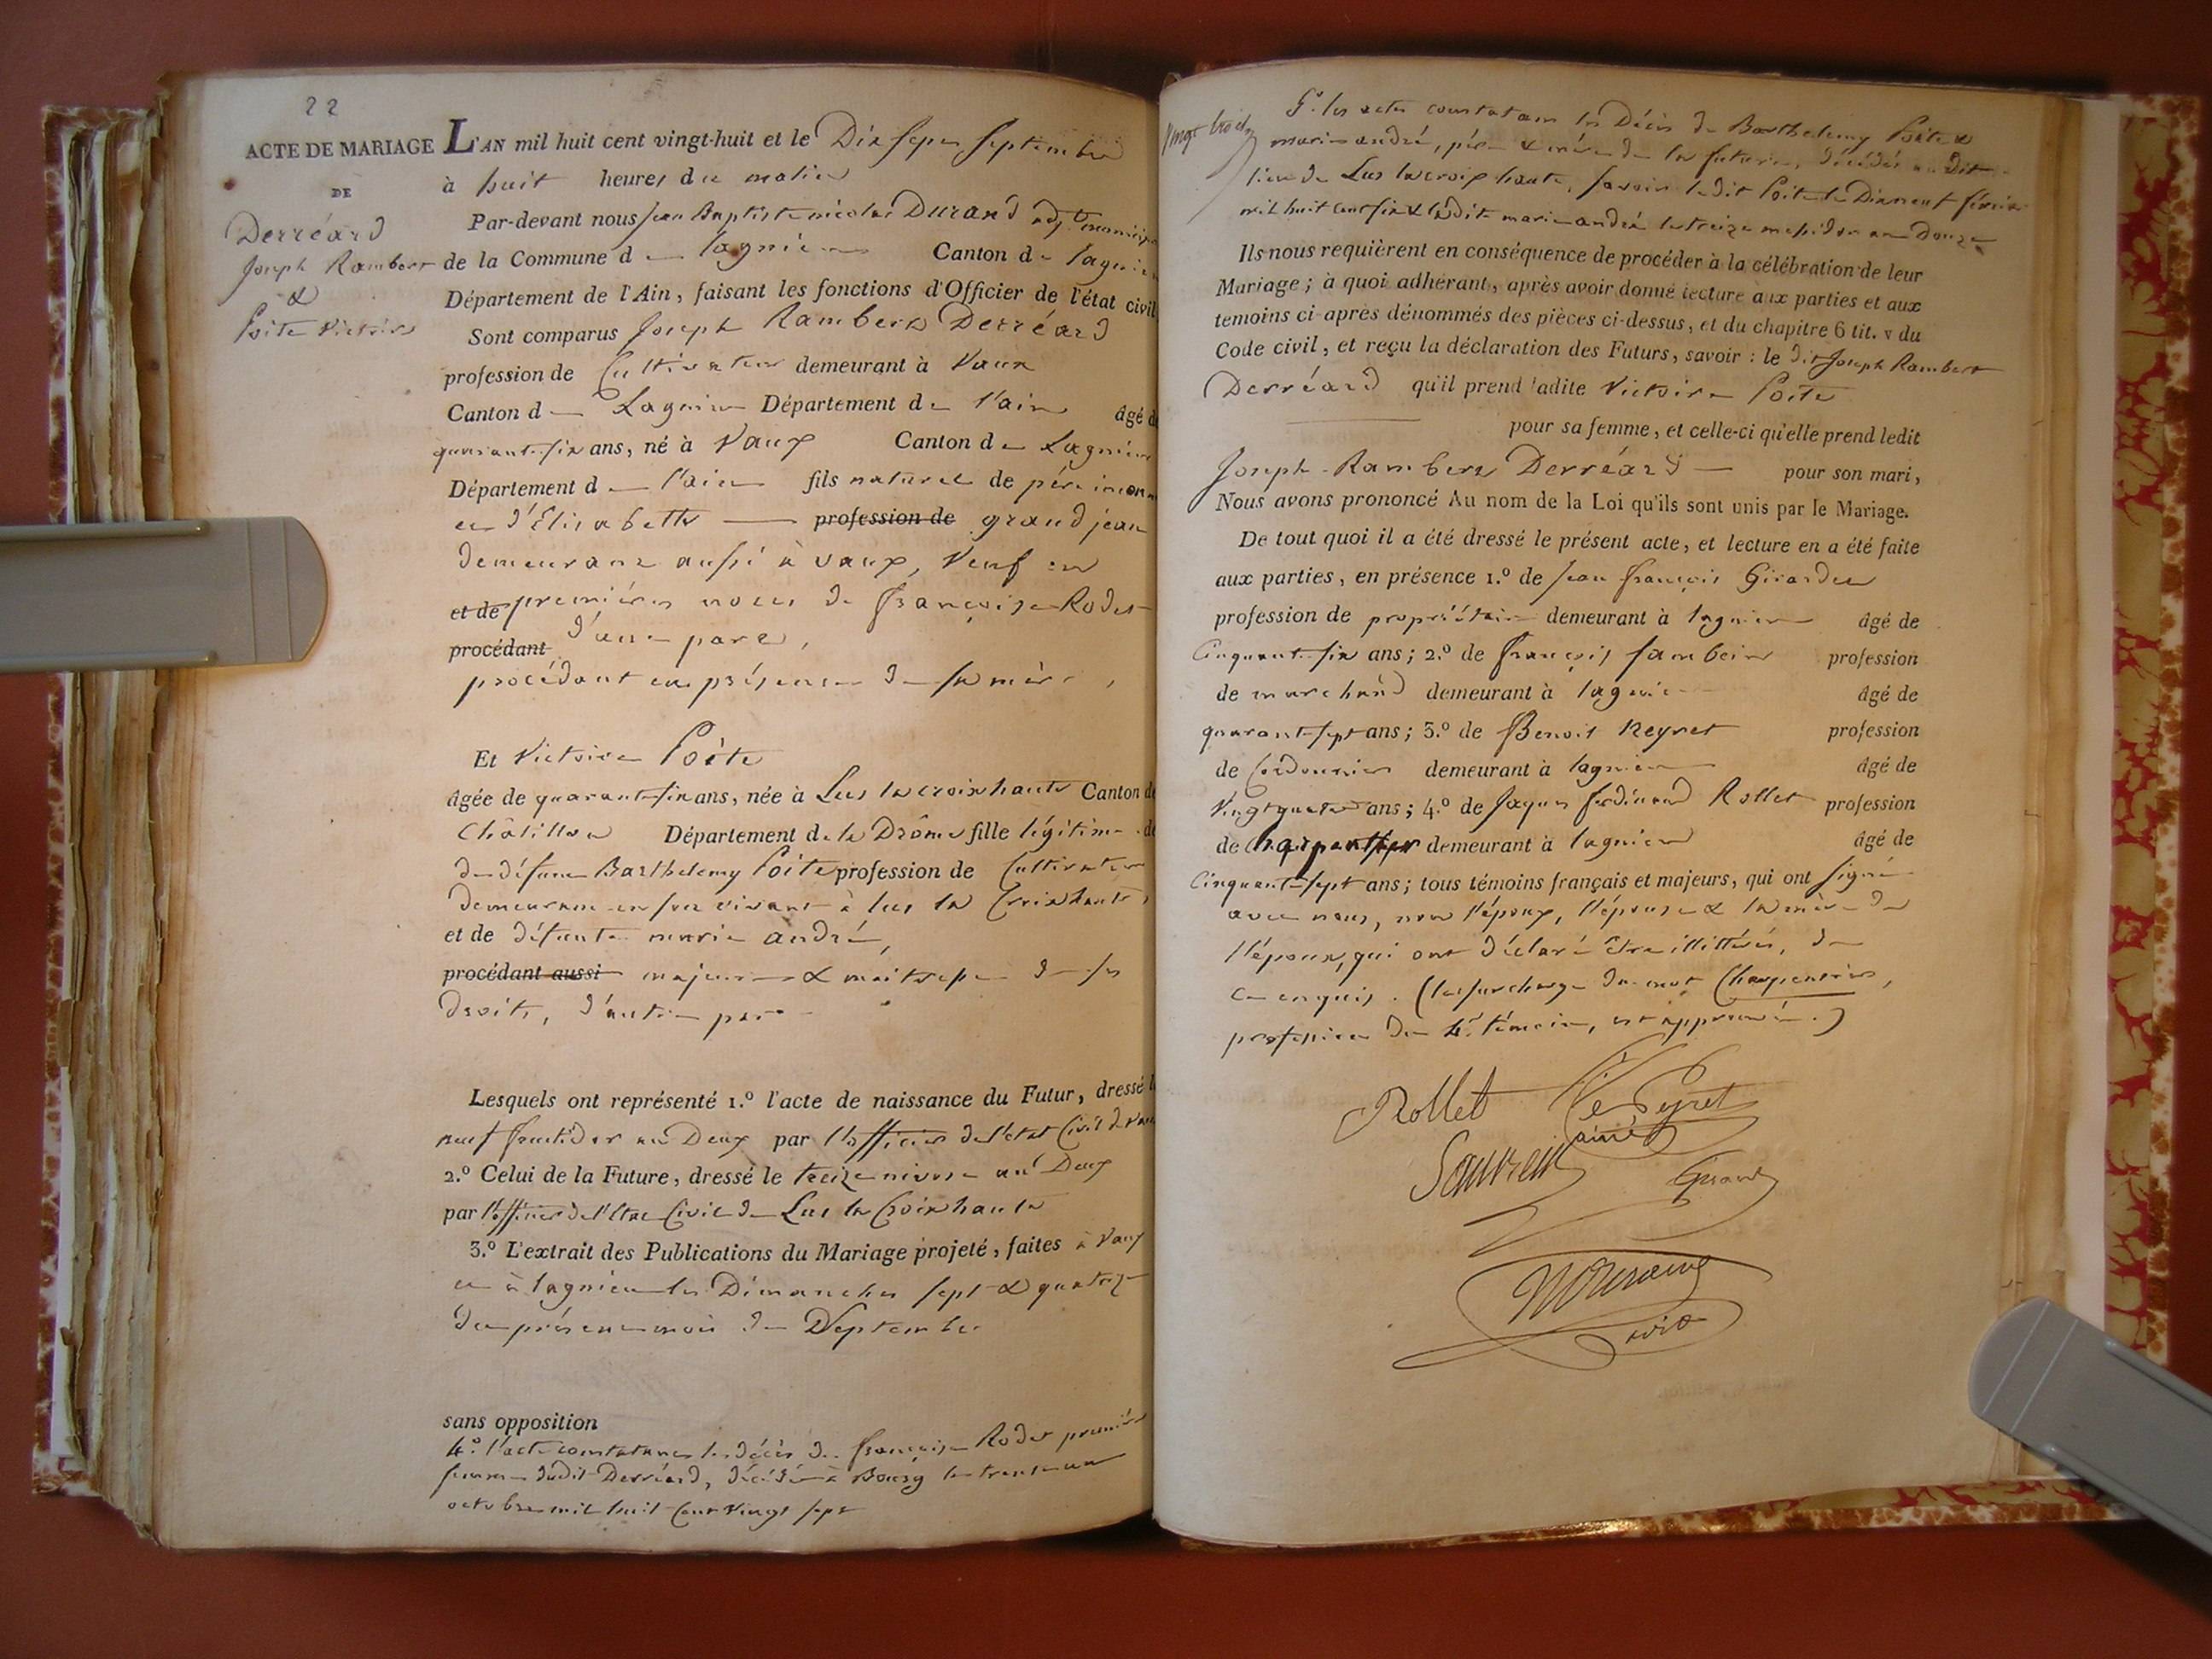 22
ACTE DE MARIAGE
DE
Derréard
Joseph Rambert
&
Poite Victoire
L'AN mil huit cent vingt-huit et le Dix Sept Septembre
à huit heures du matin
Par-devant nous Jean Baptiste nicolas Durand adjt municipal
de la Commune de lagnieu Canton de lagnieu
Département de l'Ain, faisant les fonctions d'Officier de l'état civil
Sont comparus Joseph Rambert Derréard
profession de Cultivateur demeurant à Vaux
Canton de Lagnieu Département de l'ain âgé de
quarante-six ans, né à Vaux Canton de Lagnieu
Département de l'ain fils naturel de père inconnu
et d'Élisabette profession de grand jean
demeurant aussi à vaux, Veuf en
et de premières noces de françoise Rodet
procédant d'une part,
procédant en présence de sa mère,
Et Victoire Poite
âgée de quarante-six ans, née à Lus la croix haute Canton de
Châtillon Département de la Drôme fille légitime de
de défunt Barthelemy Poite profession de Cultivateur
demeurant en son vivant à lus la Croix haute,
et de défunte marie andré,
procédant aussi majeure & maitresse de ses
droits, d'autre part
Lesquels ont représenté 1.º l'acte de naissance du Futur, dressé le
neuf fructidor an Deux par l'officier de l'état Civil de vaux
2.º Celui de la Future, dressé le treize nivose an Deux
par l'officier de l'état Civil de Lus la Croix haute
3.º L'extrait des Publications du Mariage projeté, faites à Vaux
et à lagnieu les Dimanches sept & quatorze
du présent mois de Septembre
sans opposition
4.º l'acte constatant le décès de françoise Rodet première
femme dudit Derréard, décédée à Bourg le trente un
octobre mil huit Cent Vingt sept
Vingt trois
5.º les actes constatant les Décès de Barthelemy Poite &
marie andré, père & mère de la future, décédés au Dit
lieu de Lus la croix haute, savoir ledit Poite le Dixneuf février
mil huit cent six & ladite marie andré le treize messidor an Douze
Ils nous requièrent en conséquence de procéder à la célébration de leur
Mariage; à quoi adhérant, après avoir donné lecture aux parties et aux
temoins ci-après dénommés des pièces ci-dessus, et du chapitre 6 tit. v du
Code civil, et reçu la déclaration des Futurs, savoir : le dit Joseph Rambert
Derréard qu'il prend ladite Victoire Poite
pour sa femme, et celle-ci qu'elle prend ledit
Joseph-Rambert Derréard pour son mari,
Nous avons prononcé Au nom de la Loi qu'ils sont unis par le Mariage.
De tout quoi il a été dressé le présent acte, et lecture en a été faite
aux parties, en présence 1.º de Jean françois Girardet
profession de propriétaire demeurant à lagnieu âgé de
Cinquante-six ans; 2.º de françois profession
de marchand demeurant à lagnieu âgé de
quarante-sept ans; 3.º de Benoit Reyret profession
de Cordonnier demeurant à lagnieu âgé de
Vingt quatre ans; 4.º de Jaques ferdinand Rollet profession
de Charpentier demeurant à lagnieu âgé de
Cinquante-sept ans; tous témoins français et majeurs, qui ont signé
avec nous, non l'époux, l'épouse & la mère de
l'époux, qui ont déclaré être illittérés, de
ce enquis. (la surcharge du mot Charpentier,
profession du 4.e témoin, est approuvée.)
Rollet
Peyret
ainé
Durand